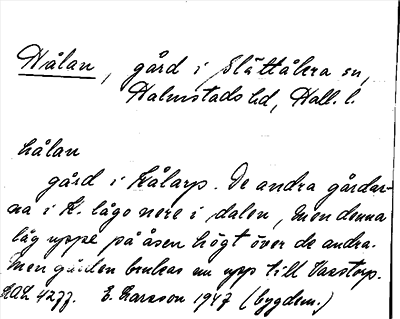 Hålan, gård i Slättåkra sn,
Halmstads hd, Hall. l.
hålan
gård i Kålarp. De andra gårdar-
na i K. lågo nere i dalen, men denna
låg uppe på åsen högt över de andra.
Men gården brukas nu upp till Vaastorp.
KAL 4277. E. Larsson 1947 (bygdem.)